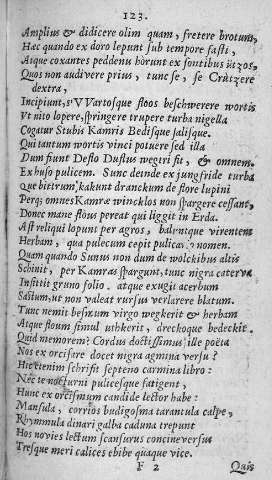 123.
Amplius & didicere olim quam, fretere brotum,
Hæc quando ex doro lepunt sub tempore fasti,
Atque coxantes peddenu horunt ex fontibus ützos,
Quos non audivere prius, tunc se, se Crützere
dextra,
Incipiunt, s'VVartosque floos beschwerere wortis
Ut nito lopere, springere trupere turba nigella
Cogatur Stubis Kamris Bedisque salisque.
Qui tantum wortis vinci potuere sed illa
Dum fiunt Desto Dustus wegtrifit, & omnem.
Ex huso pulicem. Sunc deinde ex jungfride turba
Que bittrum, kakunt dranckum de flore lupini
Perq; omnes Kamræ wincklos non spargere cessant,
Donec mane flous pereat qui liggit in Erda.
Ast reliqui lopunt per agros, virentem
Herbam, qua pulecum cepit pulica nomen.
Quam quando Sunus non dum de wolckibus altis
Schinit, per Kamras spargunt, tunc nigra caterva
Insistit gruno folio. atque exugit acerbum
Saftum, ut non valeat rursus verlarere blatum.
Tunc nemit besmum virgo wegkerit & herbam
Atque floum simul uthkerit, dreckoque bedeckit.
Quid memorem? Cordus doctissimus ille poëta
Nos ex orcisare docet nigra agmina versu?
Hic etenim schrifit septeno carmina libro:
Nec te nocturni pulicesque fatigent,
Hunc ex orcismum candide lector habe:
Mansula, corrios budigosma tarantula calpe,
Rhymmula dinari galba caduna trepunt
Hos novies lectum scansurus concine versus
Tresque meri calices ebibe quaque vice.
F 2 Quis